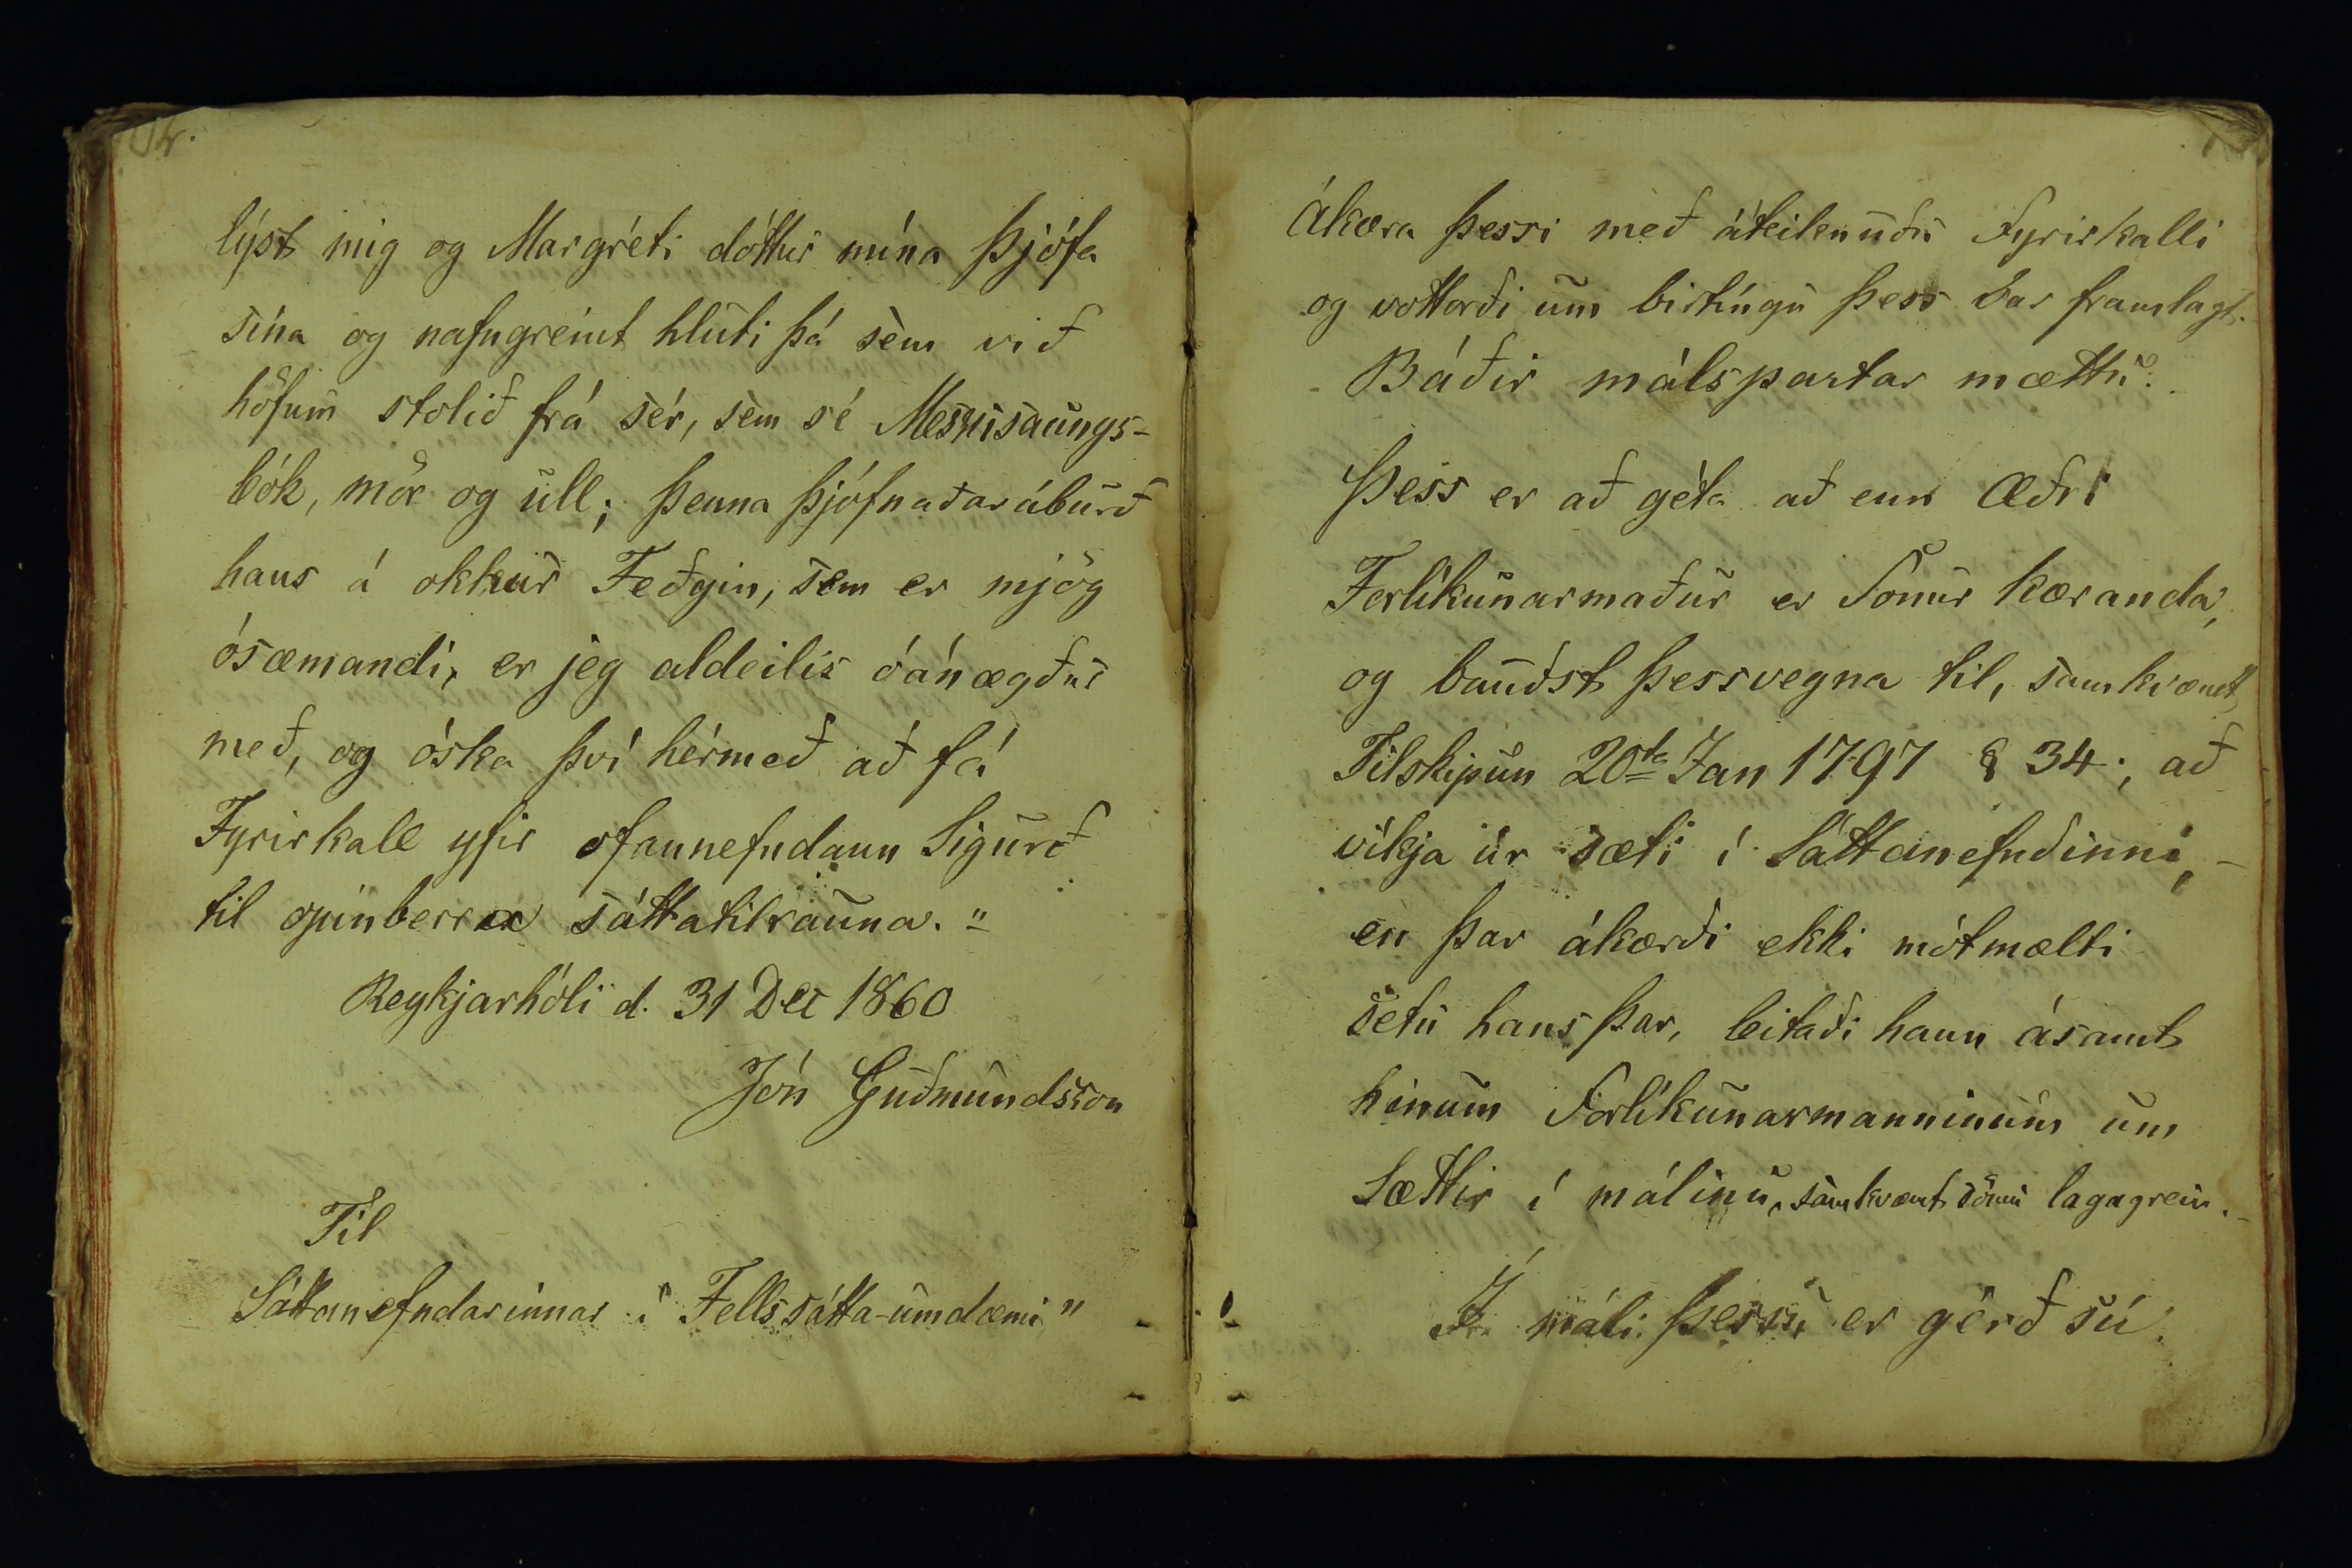 lýst mig og Margréti dóttur mína Þjófa
sína og nafngreint hluti þá sem við
höfum stolið frá sér, sem sé Messusaungs-
bók, mör og ull; þenna þjófnaðaráburð
hans á okkur Feðgin, sem er mjög
ósæmandi, er jeg aldeilis óánægður
með, og óska því hérmeð að fá
Fyrirkall yfir ofannefndann Sigurð
til opinberra sáttatilrauna."
Reykjarhóli d. 31 Dec 1860
Jón Guðmundsson
Til
Sáttanefndarinnar í Fellssátta-umdæmi"
Ákæra þessi með áteiknuðu Fyrirkalli
og vottorði um birtíngu þess var framlagt.
Báðir málspartar mættu.
Þess er að géta að enn Æðri
Forlíkunarmaður er Sonur kæranda,
og bauðst þessvegna til, samkvæmt
Tilskipun 20ta Jan 1797 § 34., að
víkja úr sæti í Sáttanefndinni, -
en þar ákærði ekki mótmælti
setu hans þar, leitaði hann ásamt
hinum Forlíkunarmanninum um
Sættir í málinu, samkvæmt sömu lagagrein.
Í máli þessu er gérð sú